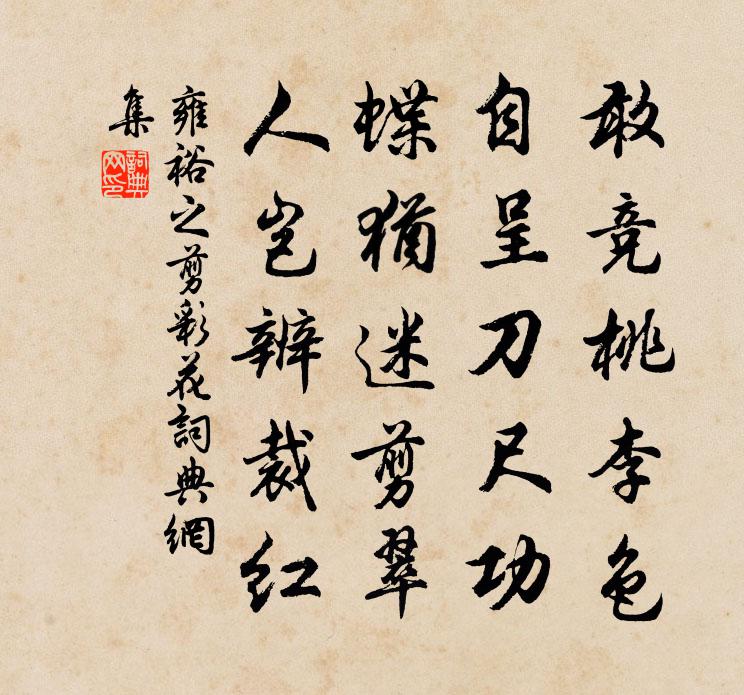 敢竞桃李色
自呈刀尺功
蝶猶迷剪翠
人岂辨裁红
雍裕之剪彩花詞典網
集
詞典
网印